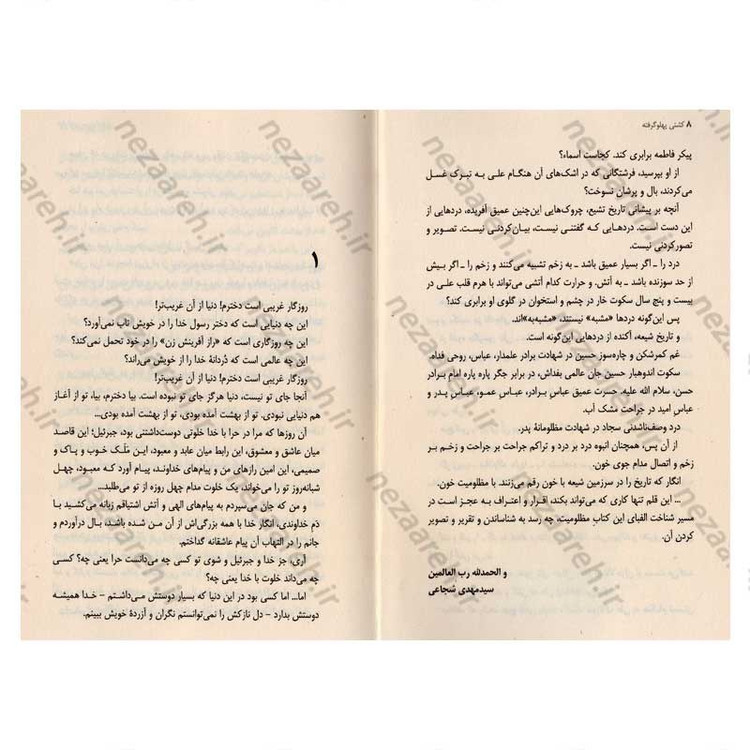 ۸ کشتی پهلوگرفته
پیکر فاطمه برابری کند. کجاست اسماء؟
از او بپرسید، فرشتگانی که در اشک‌های آن هنگام علی به تبرک غسل
می‌کردند، بال و پرشان نسوخت؟
آنچه بر پیشانی تاریخ تشیع، چروک‌های این‌چنین عمیق آفریده، دردهایی از
این دست است. دردهایی که گفتنی نیست، بیان‌کردنی نیست. تصویر و
تصورکردنی نیست.
درد را ـ اگر بسیار عمیق باشد ـ به زخم تشبیه می‌کنند و زخم را ـ اگر بیش
از حد سوزنده باشد ـ به آتش. و حرارت کدام آتشی می‌تواند با هرم قلب علی در
بیست و پنج سال سکوت خار در چشم و استخوان در گلوی او برابری کند؟
پس این‌گونه دردها «مشبه» نیستند، «مشبه‌به»‌اند.
و تاریخ شیعه، آکنده از دردهایی این‌گونه است.
غم کمرشکن و چاره‌سوز حسین در شهادت برادر علمدار، عباس، روحی فداه.
سکوت اندوهبار حسین جان عالمی بفداش، در برابر جگر پاره پاره امام برادر
حسن، سلام الله علیه. حسرت عمیق عباس برادر، عباس عمو، عباس پدر و
عباس امید در جراحت مشک آب.
درد وصف‌ناشدنی سجاد در شهادت مظلومانهٔ پدر.
از آن پس، همچنان انبوه درد بر درد و تراکم جراحت بر جراحت و زخم بر
زخم و اتصال مدام جوی خون.
انگار که تاریخ را در سرزمین شیعه با خون رقم می‌زنند. با مظلومیت خون.
... این قلم تنها کاری که می‌تواند بکند، اقرار و اعتراف به عجز است در
مسیر شناخت الفبای این کتاب مظلومیت، چه رسد به شناساندن و تقریر و تصویر
کردن آن.
و الحمدلله رب العالمین
سیدمهدی شجاعی
۱
روزگار غریبی است دخترم! دنیا از آن غریب‌تر!
این چه دنیایی است که دختر رسول خدا را در خویش تاب نمی‌آورد؟
این چه روزگاری است که «راز آفرینش زن» را در خود تحمل نمی‌کند؟
این چه عالمی است که دُردانهٔ خدا را از خویش می‌راند؟
روزگار غریبی است دخترم. دنیا از آن غریب‌تر!
آنجا جای تو نیست، دنیا هرگز جای تو نبوده است. بیا دخترم، بیا، تو از آغاز
هم دنیایی نبودی. تو از بهشت آمده بودی، تو از بهشت آمده بودی...
آن روزها که مرا در حرا با خدا خلوتی دوست‌داشتنی بود، جبرئیل؛ این قاصد
میان عاشق و معشوق، این رابط میان عابد و معبود، این مَلَک خوب و پاک و
صمیمی، این امین رازهای من و پیام‌های خداوند، پیام آورد که معبود، چهل
شبانه‌روز تو را می‌خواند، یک خلوت مدام چهل روزه از تو می‌طلبد...
و من که جان می‌سپردم به پیام‌های الهی و آتش اشتیاقم زبانه می‌کشید با
دَم خداوندی، انگار خدا با همه بزرگی‌اش از آن من شده باشد، بال درآوردم و
جانم را در التهاب آن پیام عاشقانه گداختم.
آری، جز خدا و جبرئیل و شوی تو کسی چه می‌دانست حرا یعنی چه؟ کسی
چه می‌داند خلوت با خدا یعنی چه؟
اما... اما کسی بود در این دنیا که بسیار دوستش می‌داشتم - خدا همیشه
دوستش بدارد - دل نازکش را نمی‌توانستم نگران و آزردهٔ خویش ببینم.
nezaareh.ir